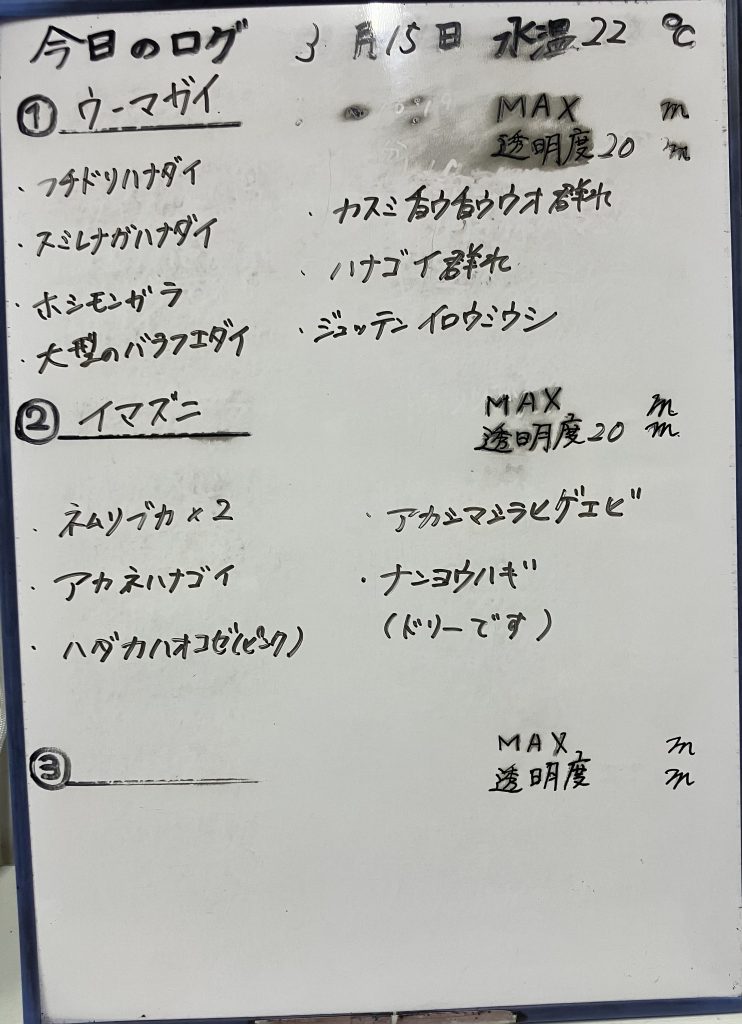 今日のログ 3月15日 水温22℃
① ウーマガイ
MAX m
透明度20m
・フチドリハナダイ
・スミレナガハナダイ
・ホシモンガラ
・大型のバラフエダイ
・カスミチョウチョウウオ群れ
・ハナゴイ群れ
・ジュッテンイロウミウシ
② イマズニ
MAX m
透明度20m
・ネムリブカ×2
・アカネハナゴイ
・ハダカハオコゼ(ピンク)
・アカシマシラヒゲエビ
・ナンヨウハギ
(ドリーです)
③
MAX m
透明度 m